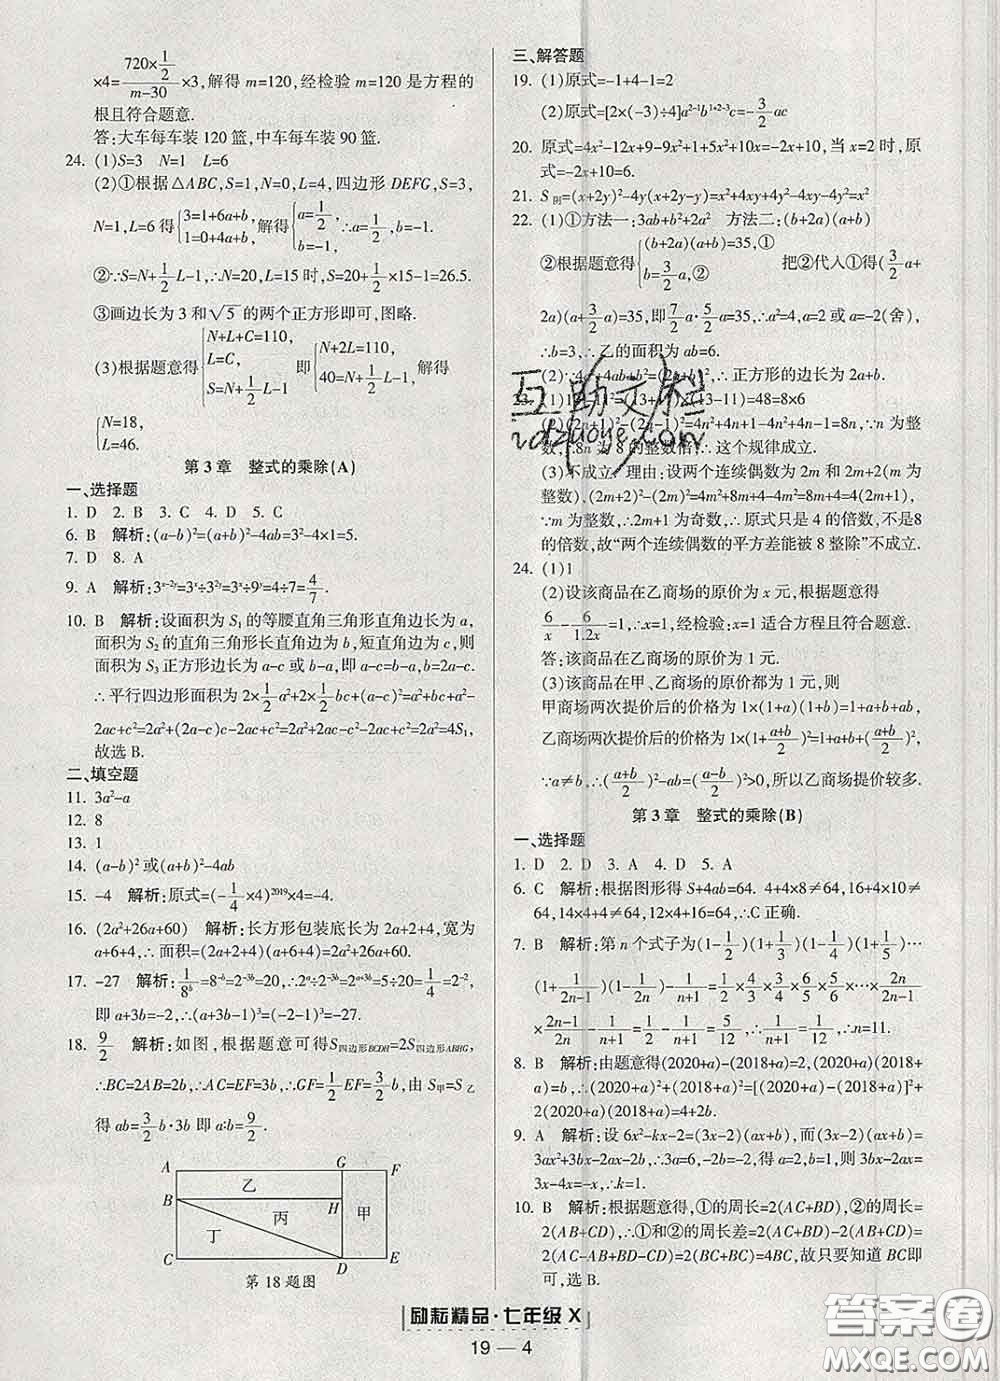 ×4=(720×1/2)/(m-30)×3,解得 m=120,经检验 m=120 是方程的
根且符合题意.
答:大车每车装 120 篮,中车每车装 90 篮.
24. (1)S=3 N=1 L=6
(2)①根据△ABC,S=1,N=0,L=4,四边形 DEFG,S=3,
N=1,L=6 得{3=1+6a+b, 1=0+4a+b,解得{a=1/2, b=-1,∴a=1/2,b=-1.
②∵S=N+1/2L-1,∴N=20,L=15 时,S=20+1/2×15-1=26.5.
③画边长为 3 和√5 的两个正方形即可,图略.
(3)根据题意得{N+L+C=110, L=C, S=N+1/2L-1 即{N+2L=110, 40=N+1/2L-1,解得
{N=18, L=46.
第 3 章 整式的乘除(A)
一、选择题
1. D 2. B 3. C 4. D 5. C
6. B 解析:(a-b)²=(a+b)²-4ab=3²-4×1=5.
7. D 8. A
9. A 解析:3ˣ⁻²ʸ=3ˣ÷3²ʸ=3ˣ÷9ʸ=4÷7=4/7.
10. B 解析:设面积为 S₁的等腰直角三角形直角边为 a,
面积为 S₂的直角三角形长直角边为 b,短直角边为 c,则
面积为 S₃正方形边长为 a-c 或 b-a,即 a-c=b-a,b=2a-c.
∴平行四边形面积为 2×1/2a²+2×1/2bc+(a-c)²=a²+bc+a²-
2ac+c²=2a²+(2a-c)c-2ac+c²=2a²+2ac-c²-2ac+c²=2a²=4S₁,
故选 B.
二、填空题
11. 3a²-a
12. 8
13. 1
14. (a-b)²或(a+b)²-4ab
15. -4 解析:原式=(-1/4×4)²⁰¹⁹×4=-4.
16. (2a²+26a+60) 解析:长方形包装底长为 2a+2+4,宽为
a+6+4,∴面积=(2a+2+4)(a+6+4)=2a²+26a+60.
17. -27 解析:1/8ᵇ=8⁻ᵇ=2⁻³ᵇ=20,∴2ᵃ÷2⁻³ᵇ=2ᵃ⁺³ᵇ=5÷20=1/4=2⁻²,
即 a+3b=-2,∴(a+3b-1)³=(-2-1)³=-27.
18. 9/2 解析:如图,根据题意可得S四边形BCDH=2S四边形ABHG,
∴BC=2AB=2b,∴AC=EF=3b,∴GF=1/2EF=3/2b,由 S甲=S乙
得 ab=3/2b·3b 即 a:b=9/2.
A G F
乙
B H
丙 甲
丁
C D E
第 18 题图
三、解答题
19. (1)原式=-1+4-1=2
(2)原式=[2×(-3)÷4]a²⁻¹b¹⁺²⁻³c=-3/2ac
20. 原式=4x²-12x+9-9x²+1+5x²+10x=-2x+10. 当 x=2 时,原
式=-2x+10=6.
21. S阴=(x+2y)²-4y(x+2y-y)=x²+4xy+4y²-4xy-4y²=x²
22. (1)①方法一:3ab+b²+2a² 方法二:(b+2a)(a+b)
②根据题意得{(b+2a)(a+b)=35,① b=3/2a,② 把②代入①得(3/2a+
2a)(a+3/2a)=35,即7/2a·5/2a=35,∴a²=4,a=2 或 a=-2(舍),
∴b=3,∴乙的面积为 ab=6.
(2)∵4a²+4ab+b²=(2a+b)²,∴正方形的边长为 2a+b.
23. (1)13²-11²=(13+11)×(13-11)=48=8×6
(2)(2n+1)²-(2n-1)²=4n²+4n+1-4n²+4n-1=8n,∵n 为整
数,∴8n 为 8 的整数倍,∴这个规律成立.
(3)不成立 理由:设两个连续偶数为 2m 和 2m+2(m 为
整数),(2m+2)²-(2m)²=4m²+8m+4-4m²=8m+4=4(2m+1),
∵m 为整数,∴2m+1 为奇数,∴原式只是 4 的倍数,不是8
的倍数,故“两个连续偶数的平方差能被 8 整除”不成立.
24. (1)1
(2)设该商品在乙商场的原价为 x 元,根据题意得
6/x-6/1.2x=1,∴x=1,经检验:x=1 适合方程且符合题意.
答:该商品在乙商场的原价为 1 元.
(3)该商品在甲、乙商场的原价都为 1 元,则
甲商场两次提价后的价格为 1×(1+a)(1+b)=1+a+b+ab,
乙商场两次提价后的价格为 1×(1+(a+b)/2)²=1+a+b+((a+b)/2)²,
∵a≠b,∴((a+b)/2)²-ab=((a-b)/2)²>0,所以乙商场提价较多.
第 3 章 整式的乘除(B)
一、选择题
1. D 2. D 3. A 4. D 5. A
6. C 解析:根据图形得 S+4ab=64. 4+4×8≠64,16+4×10≠
64,14+4×12≠64,16+4×12=64,∴C 正确.
7. B 解析:第 n 个式子为(1-1/2)(1+1/3)(1-1/4)(1+1/5)…
(1+1/(2n-1))(1-1/2n)-1/(n+1)=1/2×4/3×3/4×6/5×5/6×…×2n/(2n-1)
×(2n-1)/2n-1/(n+1)=1/2-1/(n+1)=5/12,∴1/(n+1)=1/12,∴n=11.
8. B 解析:由题意得(2020+a)-(2018+a)=2,(2020+a)(2018
+a)=b,∴(2020+a)²+(2018+a)²=[(2020+a)-(2018+a)]²+
2(2020+a)(2018+a)=4+2b.
9. A 解析:设 6x²-kx-2=(3x-2)(ax+b),而(3x-2)(ax+b)=
3ax²+3bx-2ax-2b,∴3a=6,-2b=-2,得 a=2,b=1,则 3bx-2ax=
3x-4x=-x,∴k=1.
10. B 解析:根据题意得,①的周长=2(AC+BD),②的周长=
2(AB+CD),∴①和②的周长差=2(AC+BD)-2(AB+CD)=
2(AC-AB+BD-CD)=2(BC+BC)=4BC,故只要知道 BC即
可,选 B.
励耘精品·七年级 X
19 — 4
互助文档
答案圈
MXQE.COM